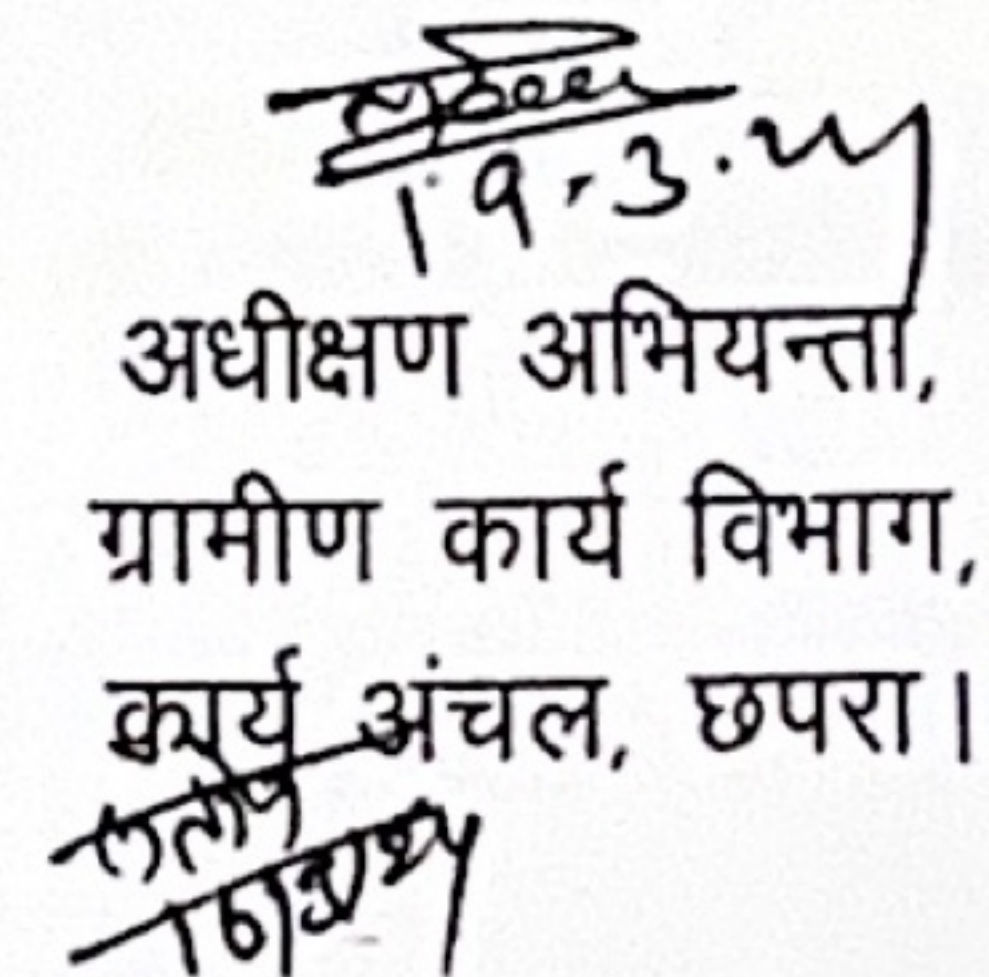 19.3.
अधीक्षण अभियन्ता,
ग्रामीण कार्य विभाग,
कार्य अंचल, छपरा।